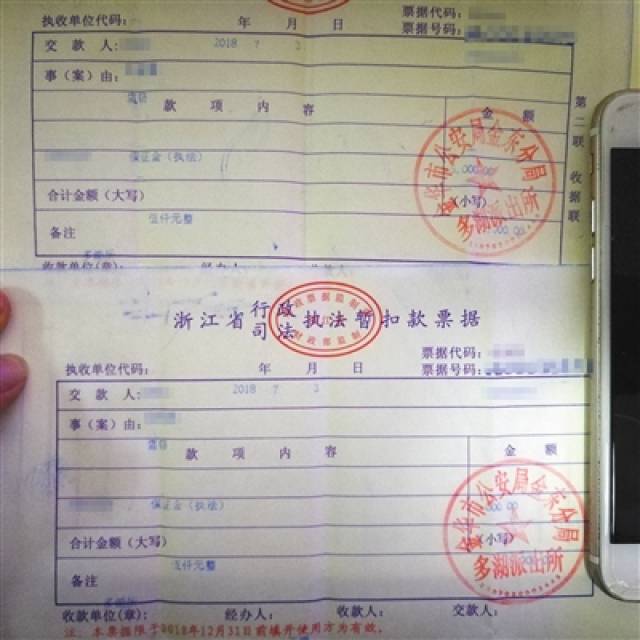 执收单位代码: 年 月 日 票据代码:
票据号码:
交 款 人: 2018 7 3
事(案)由:
盗窃
款 项 内 容 金 额
保证金(执法) 5,000.00
合计金额(大写) (小写)
伍仟元整 000.00
备注
第二联 收据联
市公安局金东分局
多湖派出所
收款单位(章): 经办人: 收款人:
浙江省行政司法执法暂扣款票据
政票据监制
财政部监制
票据代码:
执收单位代码: 年 月 日 票据号码:
交 款 人: 2018 7 3
事(案)由:
盗窃
款 项 内 容 金 额
保证金(执法) 000.00
合计金额(大写) (小写)
伍仟元整
备注
市公安局金东分局
多湖派出所
收款单位(章): 经办人: 收款人: 交款人:
注:本票据限于2018年12月31日前填开使用方为有效。